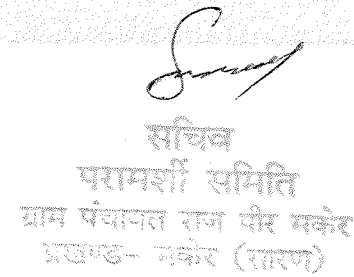 सचिव
परामर्शी समिति
ग्राम पंचायत राज पीर मकेर
प्रखण्ड– मकेर (सारण)